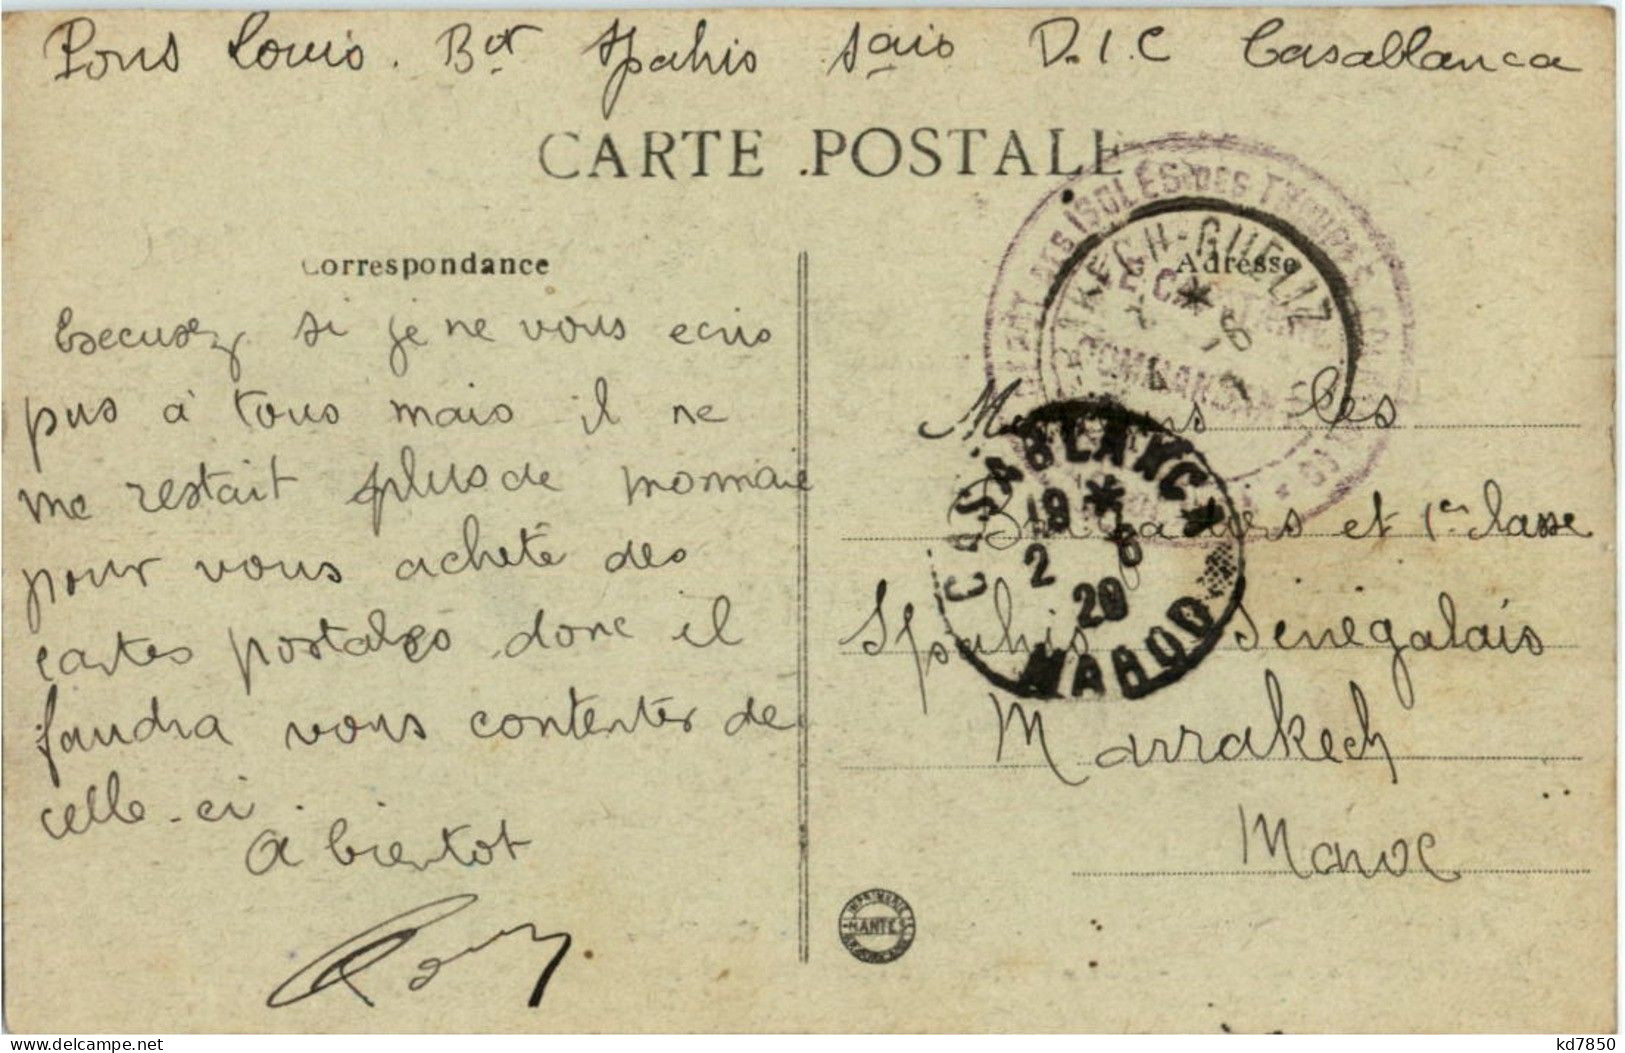 Pons Louis. Bier Spahis Sais D.I.C Casablanca
CARTE POSTALE
Correspondance
Adresse
Excusez si je ne vous ecris
pas à tous mais il ne
me restait plus de monnaie
pour vous acheté des
cartes postales donc il
faudra vous contenter de
celle-ci.
A bientot
Messieurs les
Brigadiers et 1er classe
Spahis Sénégalais
Marrakech
Maroc
ISOLÉS DES TROUPES COLONIALES
MARRAKECH-GUELIZ
CASABLANCA
19 *
2 6
20
MAROC
IMPRIMERIE
NANTES
Delcampe.net
kd7850